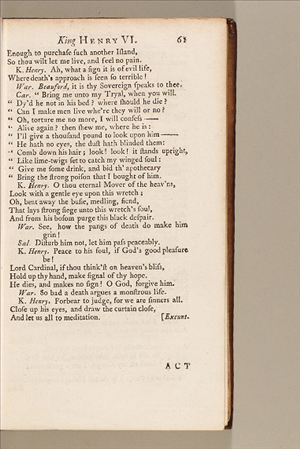 King HENRY VI. 61
Enough to purchase ſuch another Iſland,
So thou wilt let me live, and feel no pain.
K. Henry. Ah, what a ſign it is of evil life,
Where death's approach is ſeen ſo terrible!
War. Beauford, it is thy Sovereign ſpeaks to thee.
Car. " Bring me unto my Tryal, when you will.
" Dy'd he not in his bed? where ſhould he die?
" Can I make men live whe're they will or no?
" Oh, torture me no more, I will confeſs —
" Alive again? then ſhew me, where he is:
" I'll give a thouſand pound to look upon him —
" He hath no eyes, the duſt hath blinded them:
" Comb down his hair; look! look! it ſtands upright,
" Like lime-twigs ſet to catch my winged ſoul:
" Give me ſome drink, and bid th' apothecary
" Bring the ſtrong poiſon that I bought of him.
K. Henry. O thou eternal Mover of the heav'ns,
Look with a gentle eye upon this wretch;
Oh, beat away the buſie, medling, fiend,
That lays ſtrong ſiege unto this wretch's ſoul,
And from his boſom purge this black deſpair.
War. See, how the pangs of death do make him
grin!
Sal. Diſturb him not, let him paſs peaceably.
K. Henry. Peace to his ſoul, if God's good pleaſure
be!
Lord Cardinal, if thou think'ſt on heaven's bliſs,
Hold up thy hand, make ſignal of thy hope.
He dies, and makes no ſign! O God, forgive him.
War. So bad a death argues a monſtrous life.
K. Henry. Forbear to judge, for we are ſinners all.
Cloſe up his eyes, and draw the curtain cloſe,
And let us all to meditation. [Exeunt.
ACT